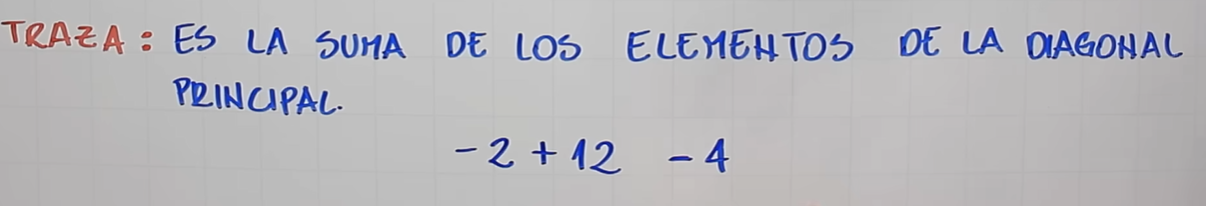 TRAZA: ES LA SUMA DE LOS ELEMENTOS DE LA DIAGONAL
PRINCIPAL.
-2 + 12 - 4